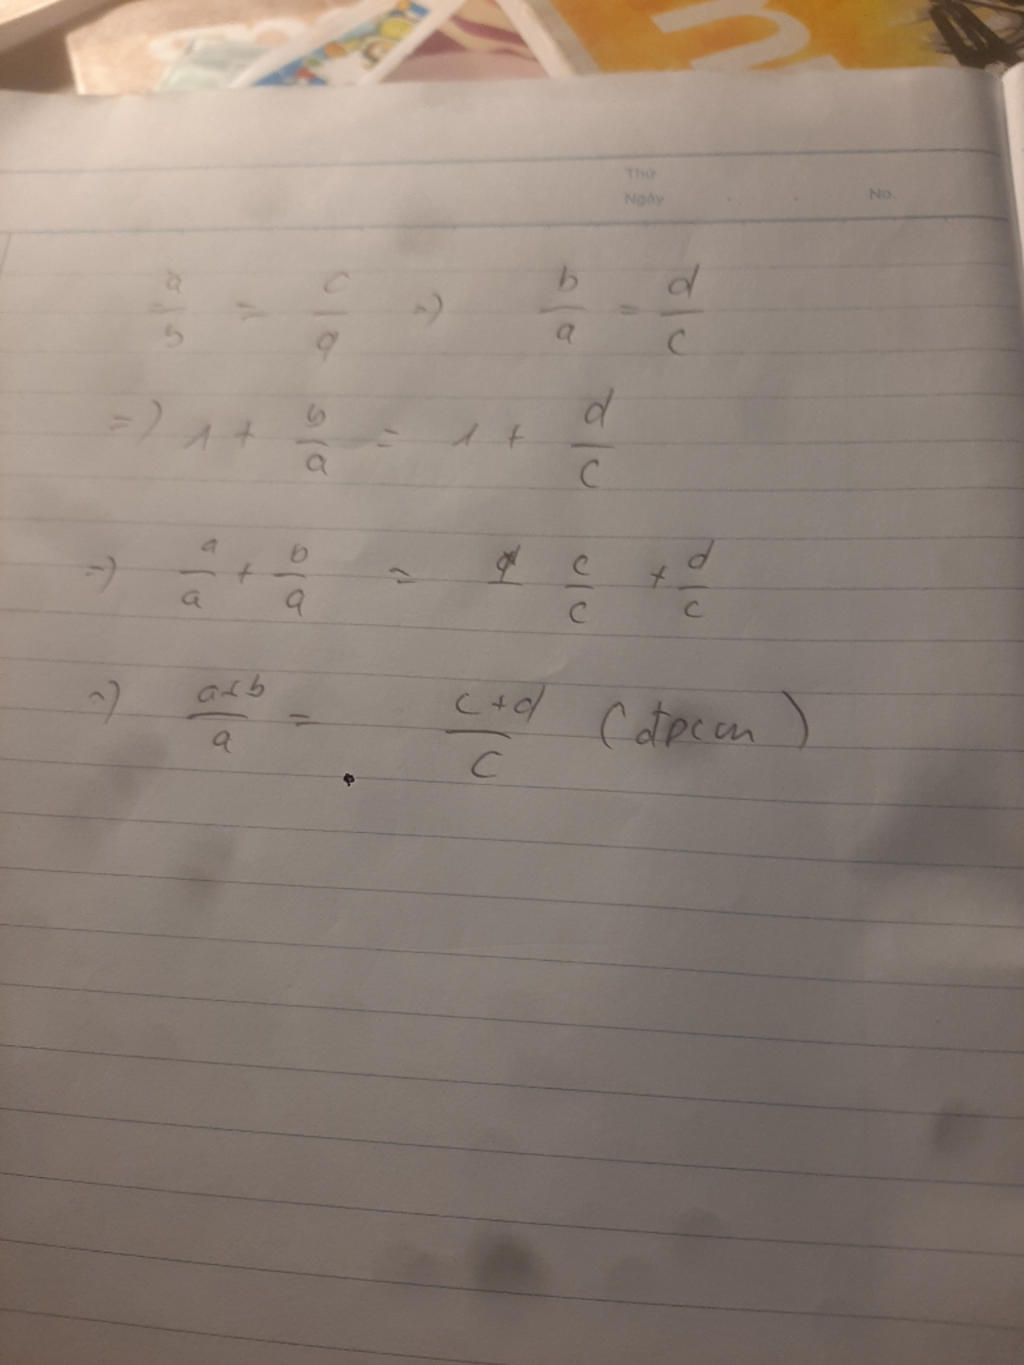 Thứ
Ngày . . No.
a/b = c/q => b/a = d/c
=> 1 + b/a = 1 + d/c
=> a/a + b/a = c/c + d/c
=> a+b/a = c+d/c (đpcm)